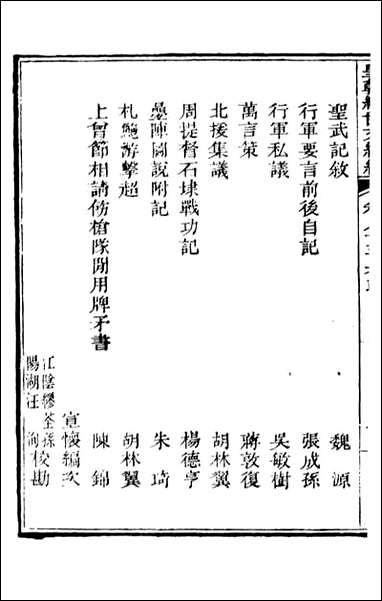 聖武記敘 魏源
行軍要言前後自記 張成孫
行軍私議 吳敏樹
萬言策 蔣敦復
北援集議 胡林翼
周提督石埭戰功記 楊德亨
疊陣圖說附記 朱琦
札鮑游擊超 胡林翼
上曾節相請仿槍隊閒用牌矛書 陳錦
宣懷編次
江陰繆荃孫
陽湖汪洵校勘